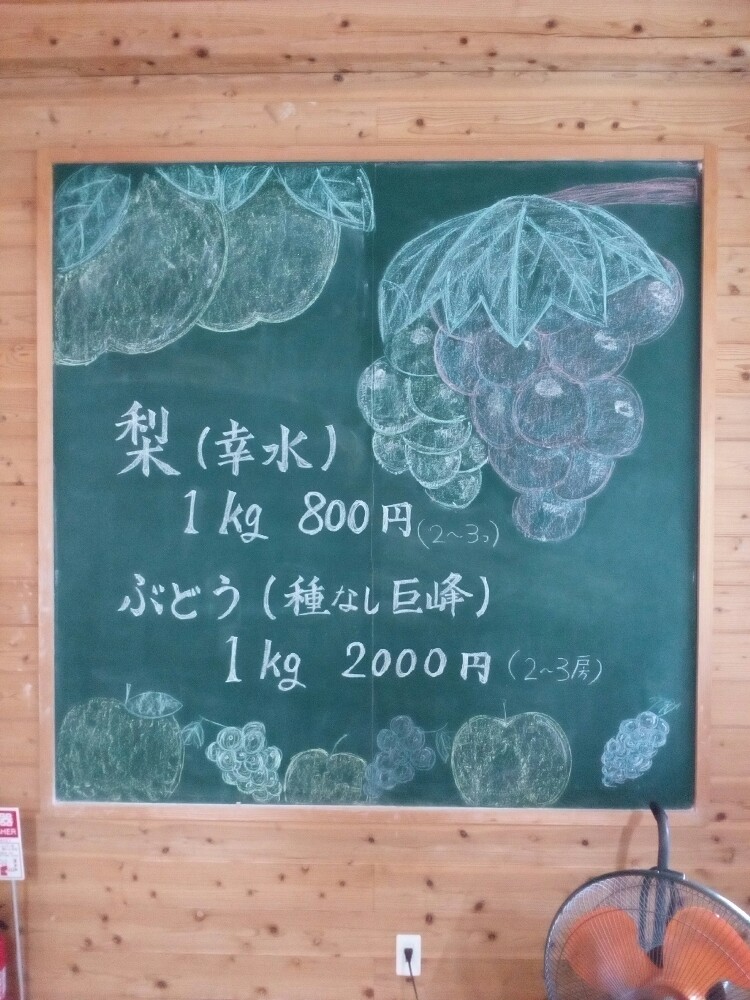 梨(幸水)
1kg 800円(2~3コ)
ぶどう(種なし巨峰)
1kg 2000円(2~3房)
器
SHER